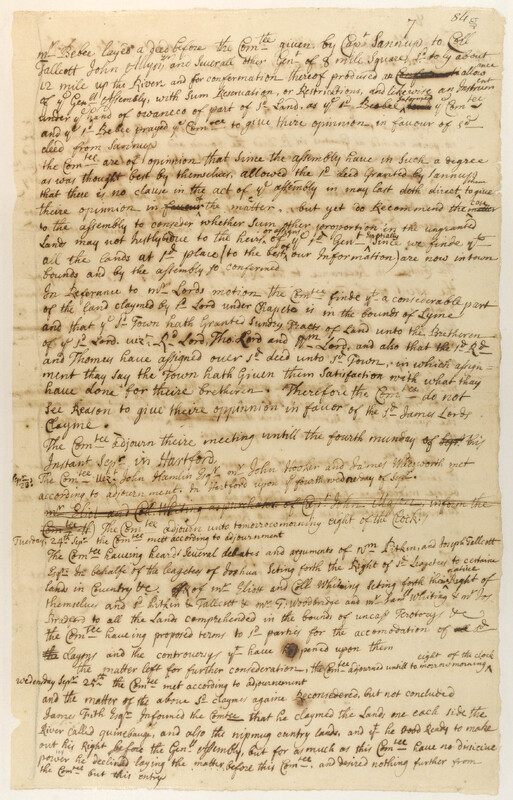 7 54
mr Bebee layes a deed before the Comtee given by Capt Sannup to Coll
Tallcott John Allyn and Severall other Gentn of 8 mile Square Sd to ly about
12 mile up the River and for conformation thereof produced an allowance
of ye Genll Assembly, with Sum Reservation, or Restrictions, and likewise an Instrument
under ye hand of owaneco of part of sd Land. as ye sd Bebee Informed ye Comtee
and ye sd Bebee prayed ye Comtee to give theire opinion in favour of sd
deed from Sannup
the Comtee are of opinnion that Since the assembly have in Such a degree
as was thought best by themselves allowed the sd deed Granted by Sannup
that there is no clause in the act of ye assembly in may last doth direct to give
theire opinnion in the matter. but yet do Recommend the case
to the assembly to consider whether Sum other proportion in the ungranted
Lands may not Justly be due to the heirs of ye sd Gentn Since we finde yt
all the lands at sd place (to the best of our Information) are now in town
bounds and by the assembly so confirmed
In Referance to mr Lords motion the Comtee finde yt a considerable part
of the land claymed by sd Lord under Chapeto is in the bounds of Lyme
and that ye sd Town hath Granted Sundry Tracts of Land unto the Bretheren
of ye sd Lord. viz, Rd Lord, Tho. Lord and Wm Lord, and also that the sd Rd
and Thomas have assigned over sd deed unto sd Town, in which assign-
ment they say the Town hath Given them Satisfaction with what they
have done for theire bretheren. Therefore the Comtee do not
See Reason to give theire oppinnion in favor of the sd James Lords
Clayme.
The Comtee adjourn theire meeting untill the fourth munday of this
Instant Sepr in Hartford
The Comtee viz. John Hamlin Esqr mr John Hooker and James Wadsworth met
according to adjournment in Hartford upon ye fourth of Sepr
mr Eliot and Coll Whiting
The Comtee adjourn unto tomorrow morning eight of the Clock
Tuesday, 24th Sepr the Comtee mett according to adjournment
The Comtee haveing heard Severall debates and arguments of Wm Pitkin and Joseph Tallcott
Esqrs in behalfe of the leagetees of Joshua Seting forth the Right of sd Leagetees to certaine
lands in Coventry &c. of mr Eliott and Coll Whiting Seting forth the Right of
themselves and sd Pitkin & Tallcott & mr T: Woodbridge and mr Saml Whiting & mr
Bradford to all the Lands comprehended in the bounds of uncass Terotorys &c
the Comtee haveing proposed terms to sd parties for the accomodation of
Clayms and the controversys yt have upon them
the matter left for further consideration, the Comtee adjourned untill tomorrow morning eight of the clock
Wednesday Sepr 25th the Comtee met according to adjournement
and the matter of the above sd claymes againe Reconsidered, but not concluded
James Fitch Esqr Informed the Comtee that he claymed the Lands one each side the
River Called quinebaug, and also the nipmug cuntry lands, and yt he stood Ready to make
out his Right before the Genll Assembly, but for as much as this Comtee have no disicive
power he declined laying the matter before this Comtee. and desired nothing further from
the Comtee but this entry